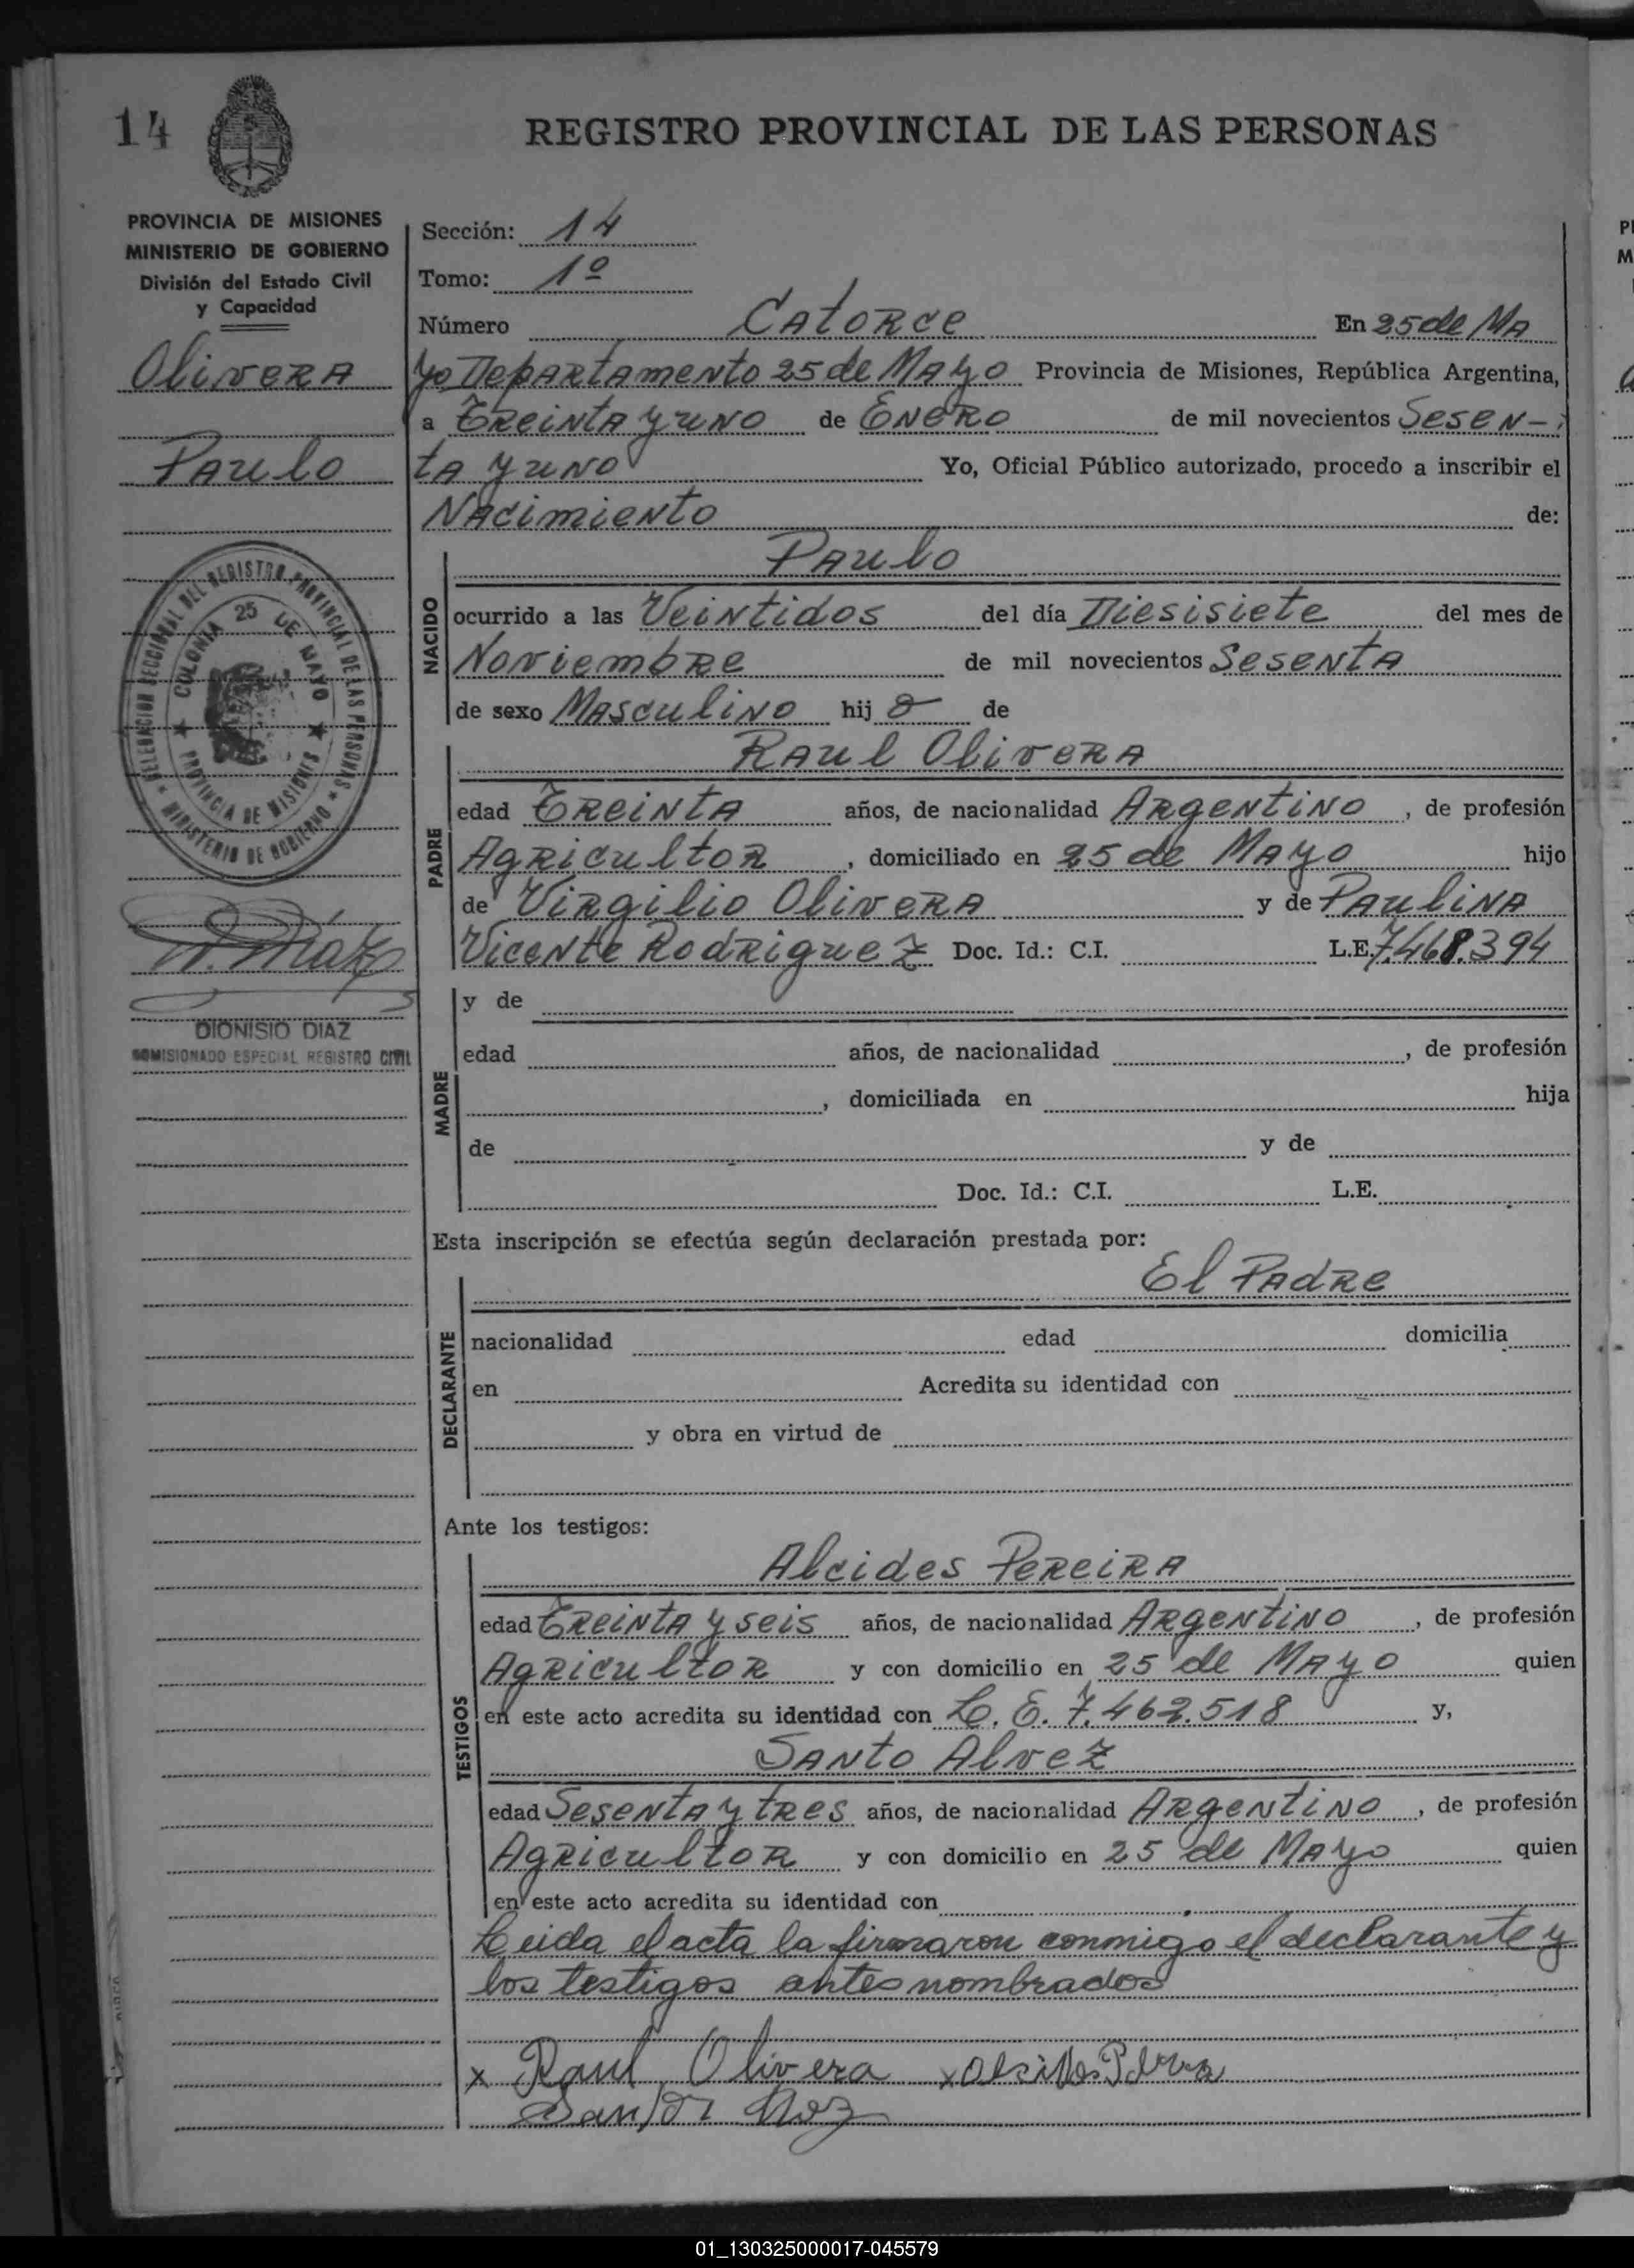 14
REGISTRO PROVINCIAL DE LAS PERSONAS
PROVINCIA DE MISIONES
MINISTERIO DE GOBIERNO
División del Estado Civil
y Capacidad
Olivera
Paulo
DELEGACION SECCIONAL DEL REGISTRO PROVINCIAL DE LAS PERSONAS
COLONIA 25 DE MAYO
PROVINCIA DE MISIONES
MINISTERIO DE GOBIERNO
D. Diaz
DIONISIO DIAZ
COMISIONADO ESPECIAL REGISTRO CIVIL
Sección: 14
Tomo: 1º
Número Catorce En 25 de Ma
yo Departamento 25 de Mayo Provincia de Misiones, República Argentina,
a Treinta y uno de Enero de mil novecientos Sesen-
ta y uno Yo, Oficial Público autorizado, procedo a inscribir el
Nacimiento de:
Paulo
NACIDO
ocurrido a las Veintidos del día Diesisiete del mes de
Noviembre de mil novecientos Sesenta
de sexo Masculino hij o de
Raul Olivera
PADRE
edad Treinta años, de nacionalidad Argentino, de profesión
Agricultor, domiciliado en 25 de Mayo hijo
de Virgilio Olivera y de Paulina
Vicente Rodriguez Doc. Id.: C.I. L.E. 7.468.394
MADRE
y de
edad años, de nacionalidad , de profesión
, domiciliada en hija
de y de
Doc. Id.: C.I. L.E.
Esta inscripción se efectúa según declaración prestada por:
El Padre
DECLARANTE
nacionalidad edad domicilia
en Acredita su identidad con
y obra en virtud de
Ante los testigos:
Alcides Pereira
TESTIGOS
edad Treinta y seis años, de nacionalidad Argentino, de profesión
Agricultor y con domicilio en 25 de Mayo quien
en este acto acredita su identidad con L. E. 7.462.518 y,
Santo Alvez
edad Sesenta y tres años, de nacionalidad Argentino, de profesión
Agricultor y con domicilio en 25 de Mayo quien
en este acto acredita su identidad con
Leida el acta la firmaron conmigo el declarante y
los testigos antes nombrados
x Raul Olivera x
01_130325000017-045579